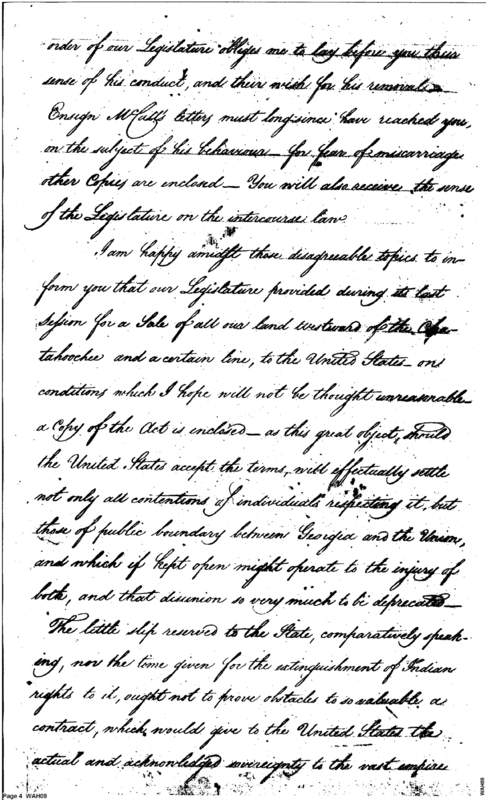 order of our Legislature obliges me to lay before you their
sense of his conduct, and their wish for his removal—
Ensign letters must long since have reached you,
on the subject of his behaviour— for fear of miscarriage
other Copies are enclosed— You will also receive the sense
of the Legislature on the intercourse law
I am happy amidst those disagreeable topics to in-
form you that our Legislature provided during its last
Session for a Sale of all our land westward of the Cha-
tahoochee and a certain line, to the United States— on
conditions which I hope will not be thought unreasonable—
a Copy of the Act is inclosed— as this great object, should
the United States accept the terms, will effectually settle
not only all contentions of individuals respecting it, but
those of public boundary between Georgia and the Union,
and which if kept open might operate to the injury of
both, and that disunion so very much to be deprecated—
The little slip reserved to the State, comparatively speak-
ing, nor the time given for the extinguishment of Indian
rights to it, ought not to prove obstacles to so valuable a
contract, which would give to the United States the
actual and acknowledged sovereignty to the vast empire
Page 4 WAH09
WAH09